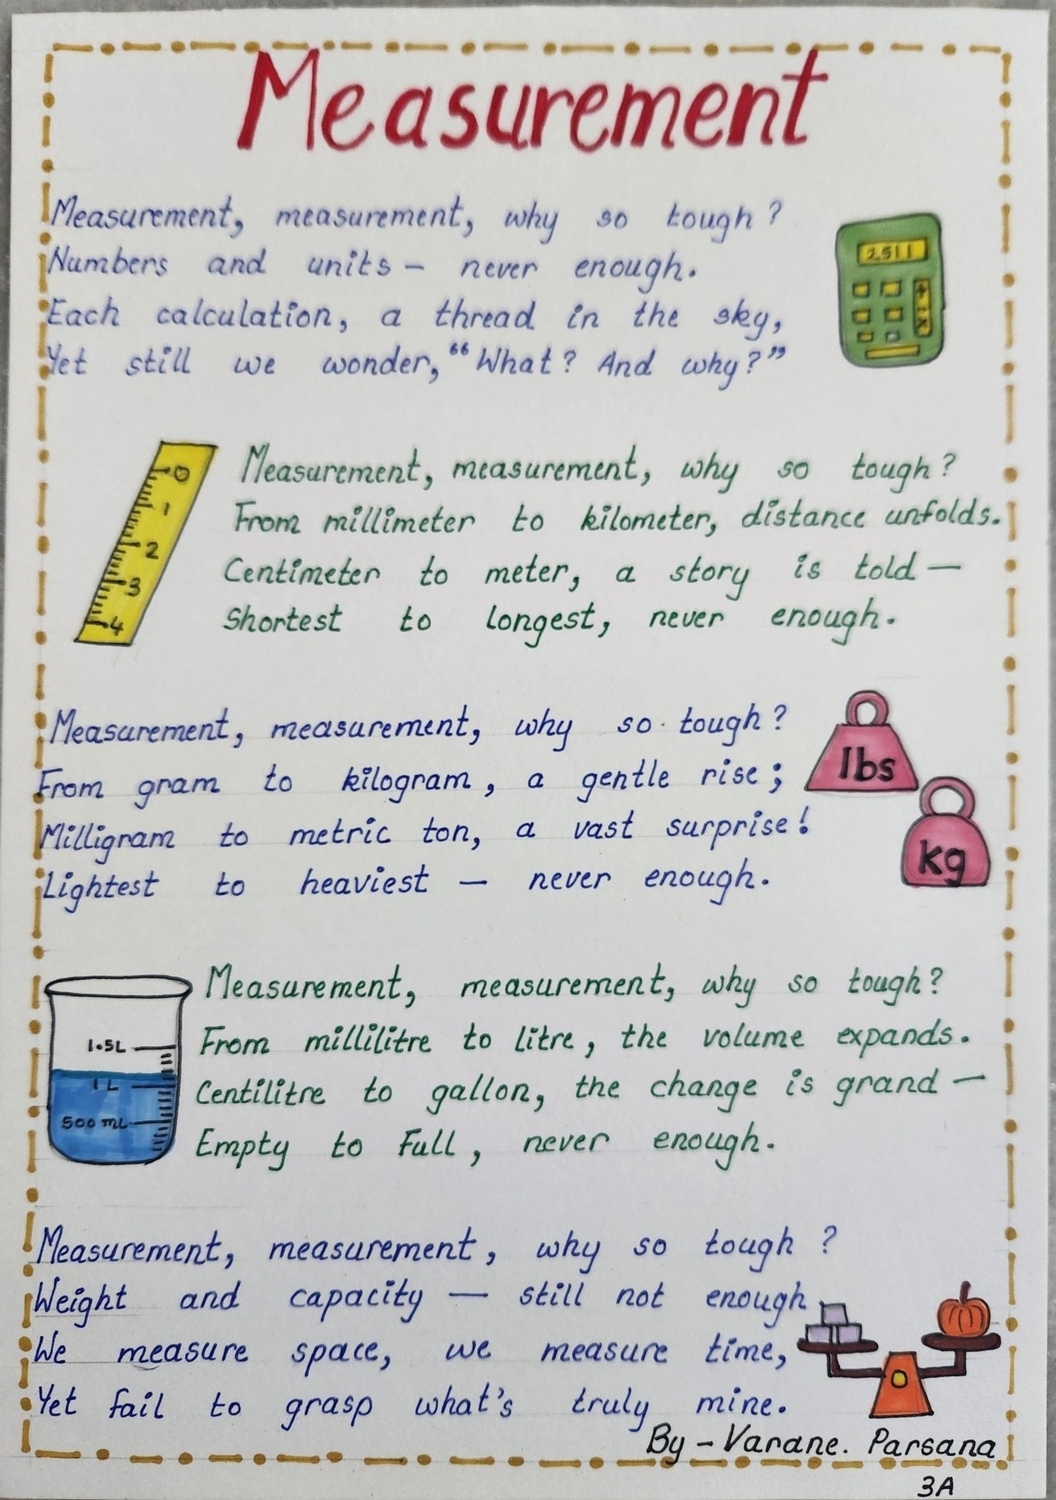 Measurement
Measurement, measurement, why so tough?
Numbers and units – never enough.
Each calculation, a thread in the sky,
Yet still we wonder, “What? And why?”
2.511
0
1
2
3
4
Measurement, measurement, why so tough?
From millimeter to kilometer, distance unfolds.
Centimeter to meter, a story is told —
Shortest to longest, never enough.
Measurement, measurement, why so tough?
From gram to kilogram, a gentle rise;
Milligram to metric ton, a vast surprise!
Lightest to heaviest — never enough.
lbs
kg
1.5L
1L
500 mL
Measurement, measurement, why so tough?
From millilitre to litre, the volume expands.
Centilitre to gallon, the change is grand —
Empty to Full, never enough.
Measurement, measurement, why so tough?
Weight and capacity — still not enough.
We measure space, we measure time,
Yet fail to grasp what's truly mine.
By – Varane. Parsana
3A